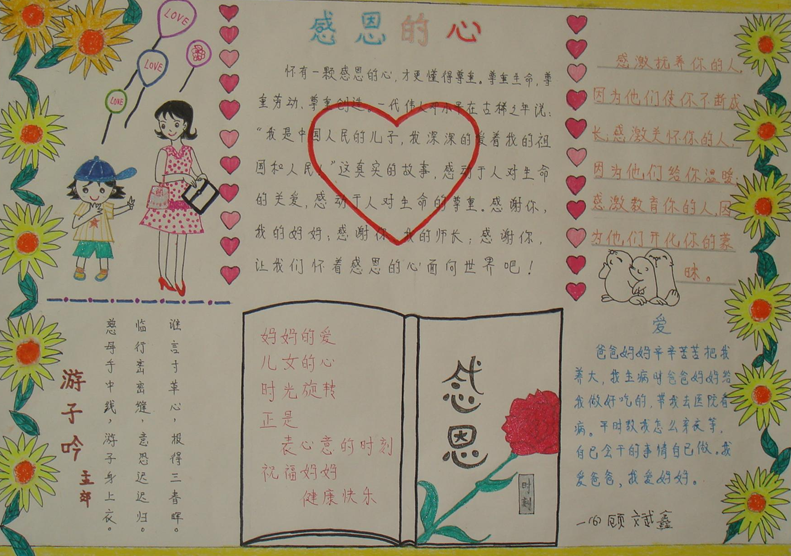 感恩的心
LOVE
LOVE
LOVE
怀有一颗感恩的心,才更懂得尊重。尊重生命,尊
重劳动,尊重创造。一代伟人 在古稀之年说:
“我是中国人民的儿子,我深深的爱着我的祖
国和人民!”这真实的故事,感动于人对生命
的关爱,感动于人对生命的尊重。感谢你,
我的妈妈;感谢你,我的师长;感谢你,
让我们怀着感恩的心面向世界吧!
感激抚养你的人,
因为他们使你不断成
长;感激关怀你的人,
因为他们给你温暖;
感激教育你的人,因
为他们开化你的蒙
昧。
游子吟
慈母手中线,游子身上衣。
临行密密缝,意恐迟迟归。
谁言寸草心,报得三春晖。
妈妈的爱
儿女的心
时光旋转
正是
表心意的时刻
祝福妈妈
健康快乐
感恩
时刻
爱
爸爸妈妈辛辛苦苦把我
养大,我生病时爸爸妈妈给
我做好吃的,带我去医院看
病。平时教我怎么 等,
自己会干的事情自己做。我
爱爸爸,我爱妈妈。
顾斌鑫